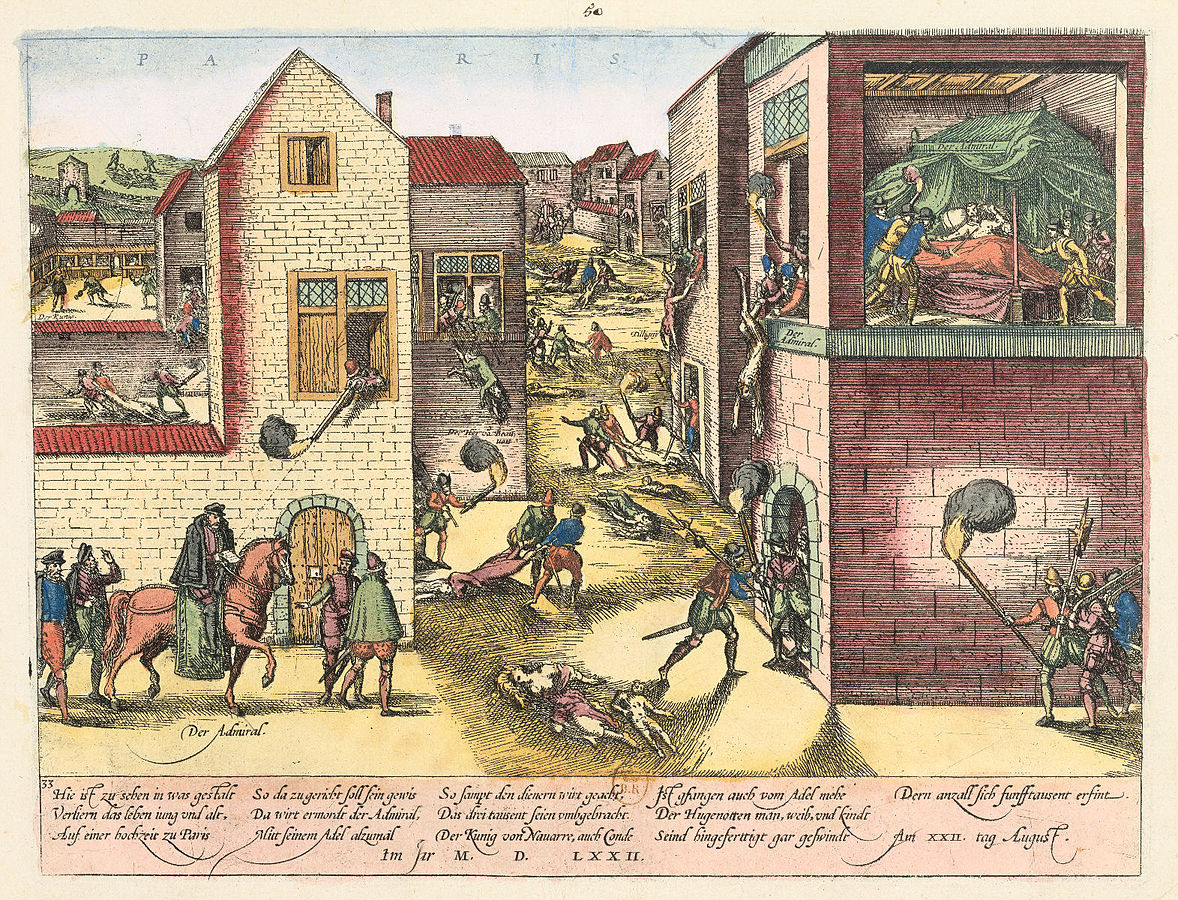 50
P A R I S
Der Admiral.
Der Kunig.
Der Admiral.
Der Admiral.
33
Hie ist zu sehen in was gestalt
Verliern das leben iung vnd alt,
Auf einer hochzeit zu Paris
So da zugericht soll sein gewis
Da wirt ermordt der Admiral,
Mitt seinem Adel alzumal
So sampt den dienern wirt geacht,
Das drei tausent seien vmbgebracht.
Der Kunig von Nauarre, auch Condt
Ist gfangen auch vom Adel mehe
Der Hugenotten man, weib, vnd kindt
Seind hingefertigt gar geschwindt
Dern anzall sich funfftausent erfint
Am XXII. tag August.
Im Jar M. D. LXXII.